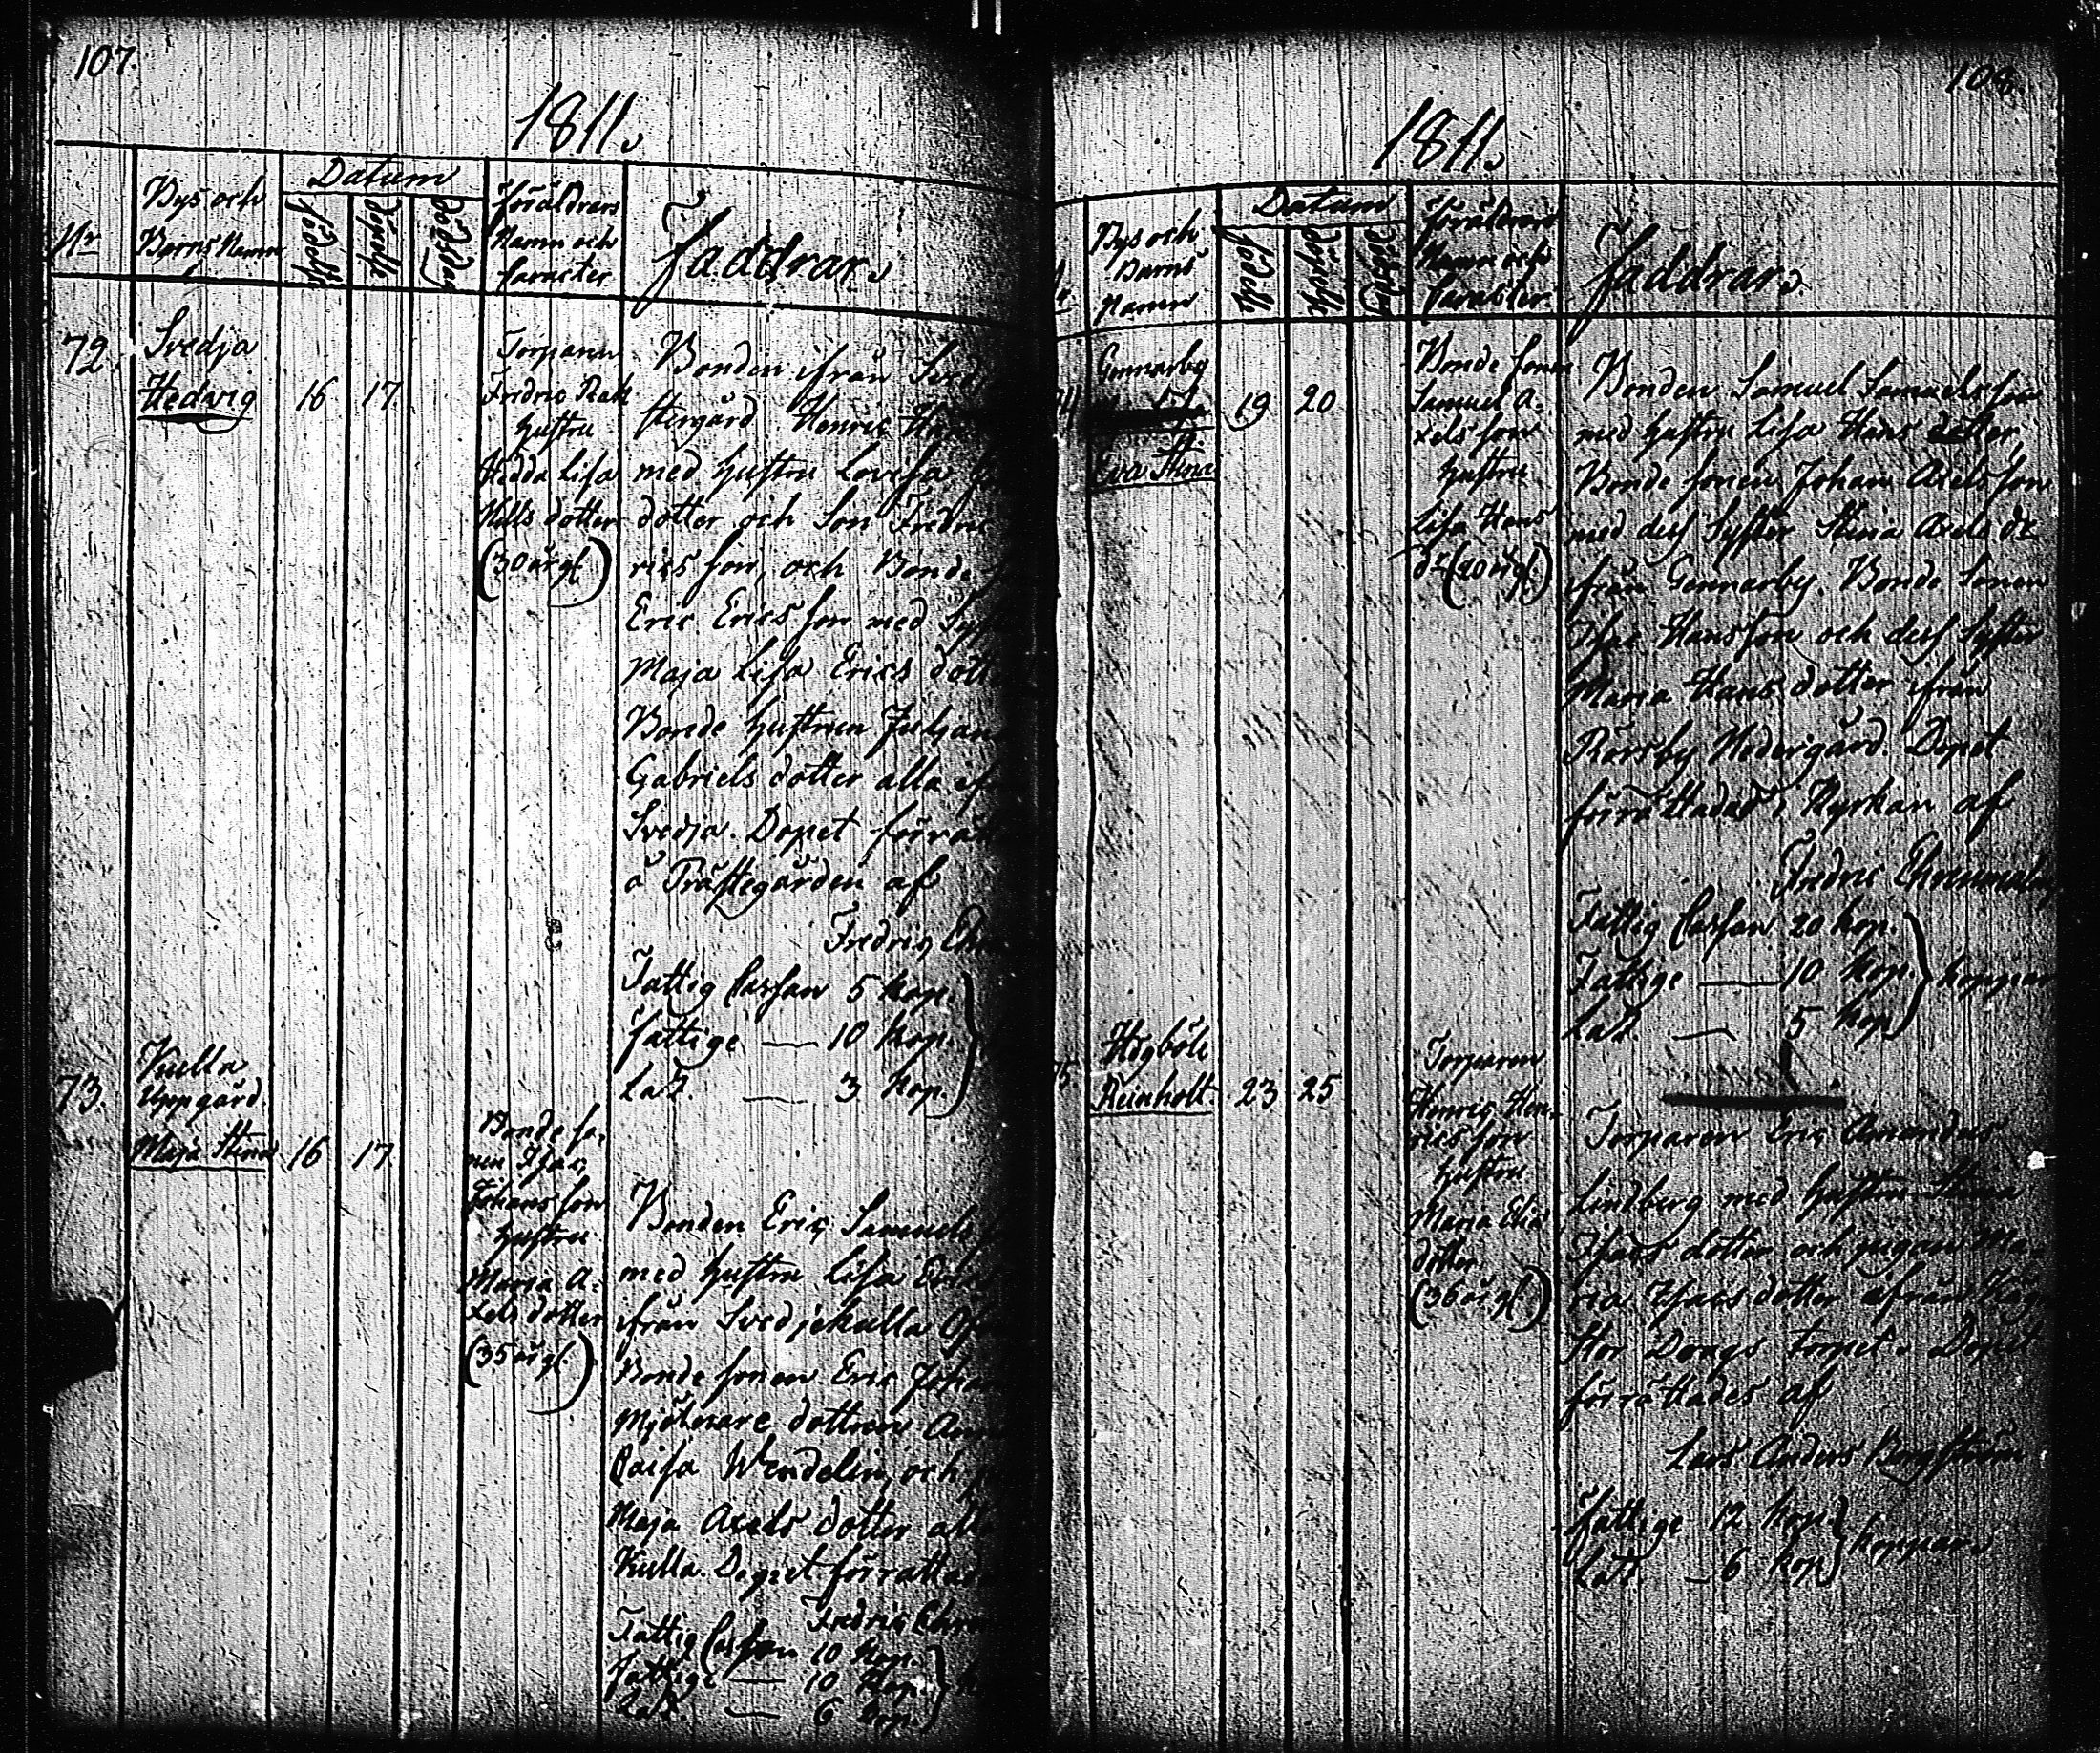 107.
1811.
Nr
Bys och
Barns Namn
Datum
födelse
döpelse
Föräldrars
Namn och
Caracter
Faddrar.
72.
Svedja
Hedwig
16
17
Torparen
Fredric Rask
hustru
Hedda Lisa
Nills dotter
(30 år gl.)
Bonden ifrån
stergård Henric
med hustru Lovisa
dotter och Son Fredric
rics son, och Bonde
Eric Erics son med
Maja Lisa Erics dott
Bonde hustrun Juliana
Gabriels dotter alla
Svedja. Dopet förrät
å Prästegården af
Fredric
Fattig Cassan 5 kop.
Fattige — 10 kop.
Lat. — 3 kop.
73.
Kulla
Uppgård.
Maja Stina
16
17
Bonde so-
nen Isac
Johans son
hustru
Maria A-
xels dotter
(35 år gl.)
Bonden Eric Samuels
med hustru Lisa Erics
ifrån Svedjekulla
Bonde sonen Eric Johan
Mjölnare dottren
Caisa Wendelin, och
Maja Axels dotter alla
Kulla. Dopet förrättad
Fredric
Fattig Cassan 10 kop.
Fattige — 10 kop.
Lat. — 6 kop.
108.
1811.
Bys och
Barns
Namn
Datum
födelse
döpelse
Föräldrars
Namn och
Caracter.
Faddrar.
Gennarby
Eva Stina
19
20
Bonde sonen
Samuel A-
xels son
hustru
Lisa Hans
dr (20 år gl.)
Bonden Samuel Samuels son
med hustru Lisa Hans dotter,
Bonde sonen Johan Axels son
med dess Syster Stina Axels dr
ifrån Gennarby. Bonde Sonen
Isac Hans son och dess Syster
Maria Hans dotter ifrån
Rörsby Nedergård. Dopet
förrättades i Kyrkan af
Fredric Ehrnmalm
Fattig Cassan 20 kop.
Fattige — 10 kop.
Lat. — 5 kop
koppar
Högböle
Reinholt
23
25
Torparen
Henric Hen-
rics son
hustru
Maria Elias
dotter
(36 år gl.)
Torparen Eric Amandus
Lindberg med hustru Stina
Isacs dotter och pigan Ma-
ria Isacs dotter ifrån
torpet. Dopet
förrättades af
Lars Anders Bergström
Fattige 12 kop
Lat. — 6 kop
koppar.